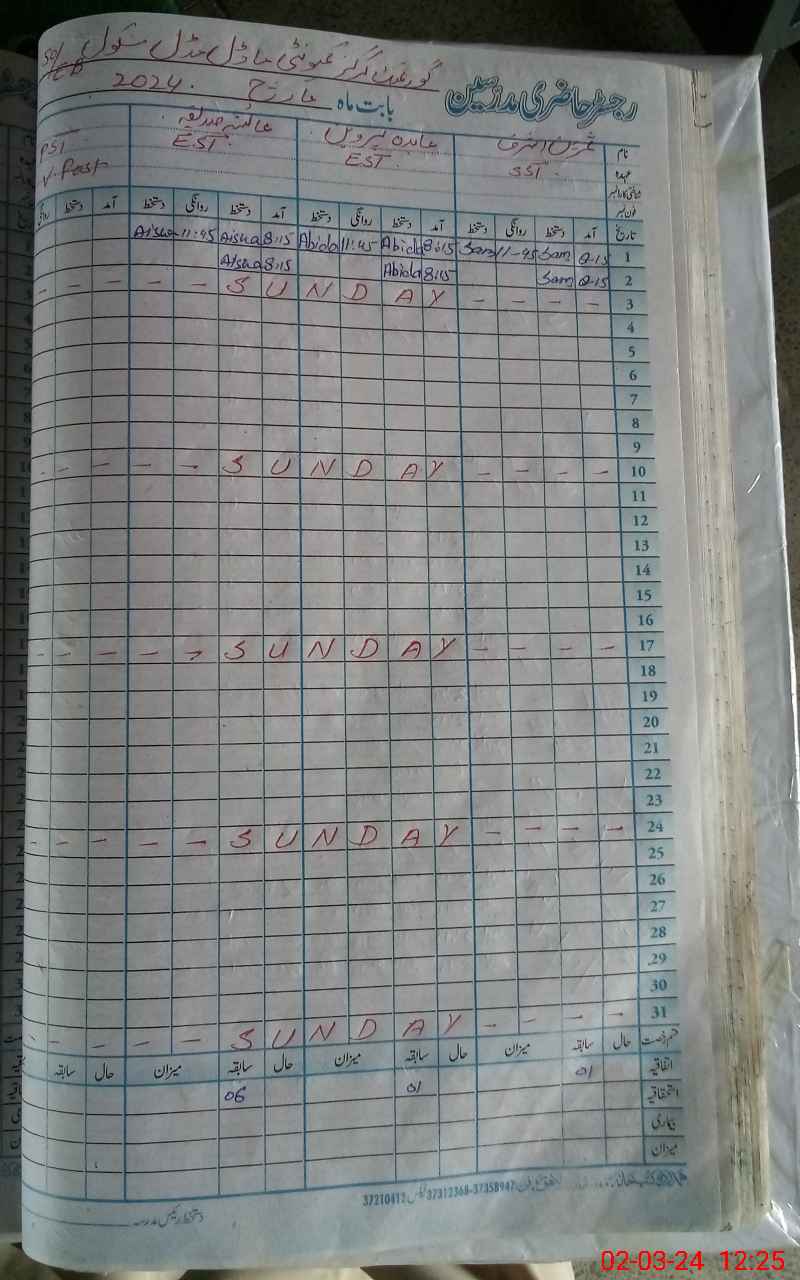 رجسٹر حاضری مدرسین
گورنمنٹ گرلز کمیونٹی ماڈل مڈل سکول
بابت ماہ مارچ 2024
نام عابدہ پروین عائشہ صدیقہ
عہدہ SST EST EST PST
V-Post
فون نمبر
تاریخ آمد دستخط روانگی دستخط آمد دستخط روانگی دستخط آمد دستخط روانگی دستخط آمد دستخط روانگی
1 8-15 Sam 11-45 Sam 8:15 Abida 11:45 Abida 8:15 Aisha 11:45 Aisha
2 8-15 Sam 8:15 Abida 8:15 Aisha
3 - - - - S U N D A Y - - - - -
4
5
6
7
8
9
10 - - - - S U N D A Y - - - - -
11
12
13
14
15
16
17 - - - - S U N D A Y - - - - -
18
19
20
21
22
23
24 - - - - S U N D A Y - - - - -
25
26
27
28
29
30
31 - - - - S U N D A Y - - - - -
قسم رخصت حال سابقہ میزان حال سابقہ میزان حال سابقہ میزان حال سابقہ
اتفاقیہ 01 01 06
استحقاقیہ
بیماری
میزان
37210412 37312368-37358947
دستخط رئیس مدرسہ
02-03-24 12:25